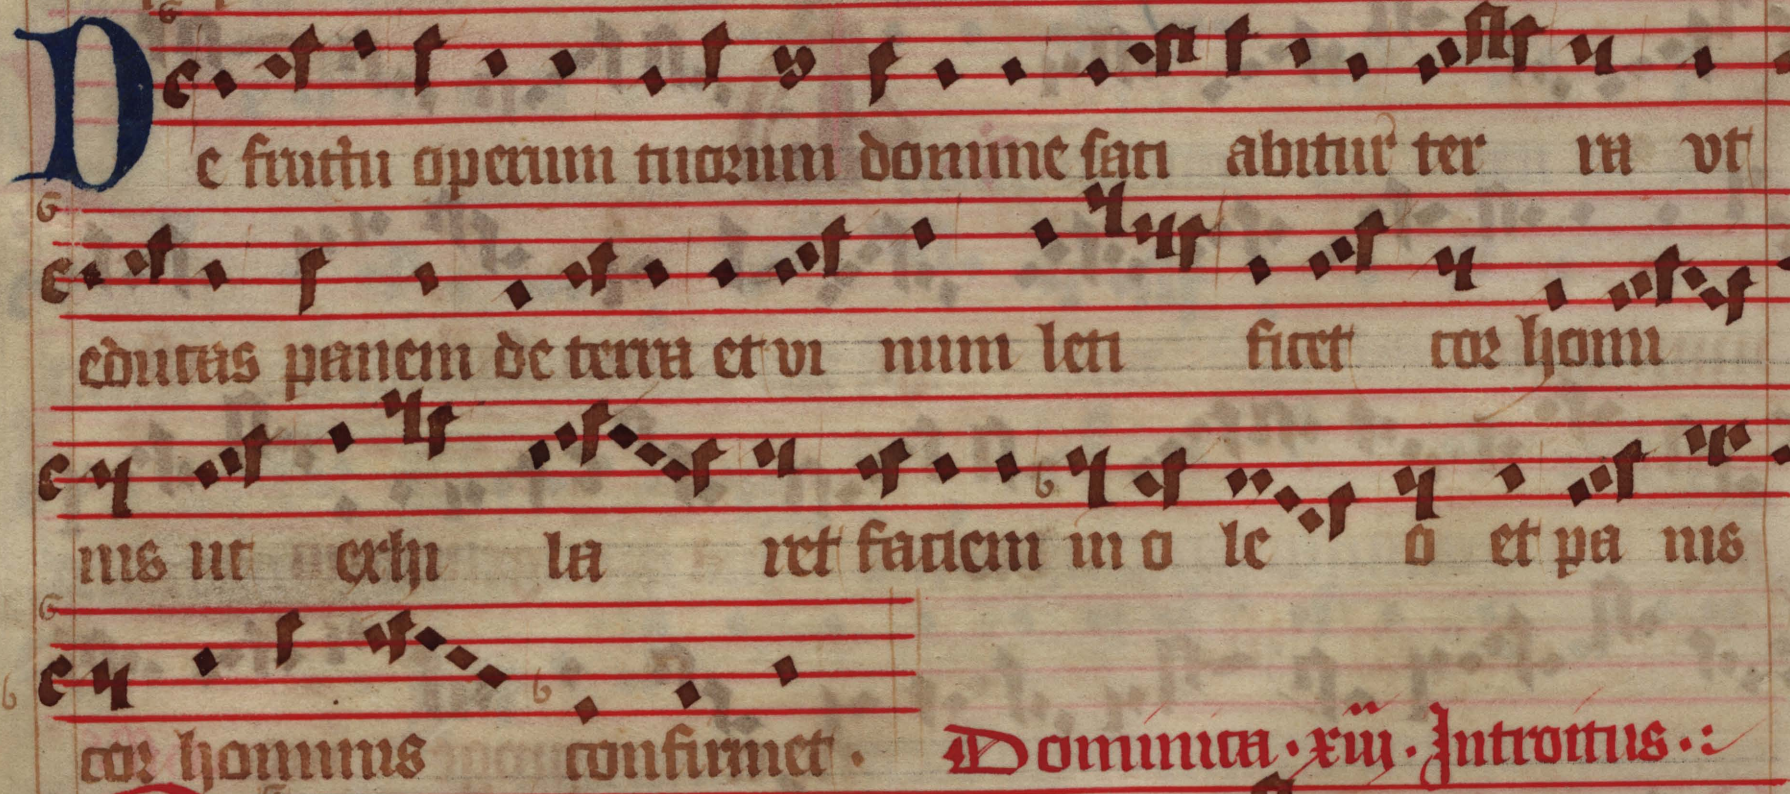 De fructu operum tuorum domine sati abitur ter ra vt
educas panem de terra et vi num leti ficet cor homi
nis ut exhi la ret faciem in o le o et pa nis
cor hominis confirmet ·
Dominica · xiii · Introitus ·: